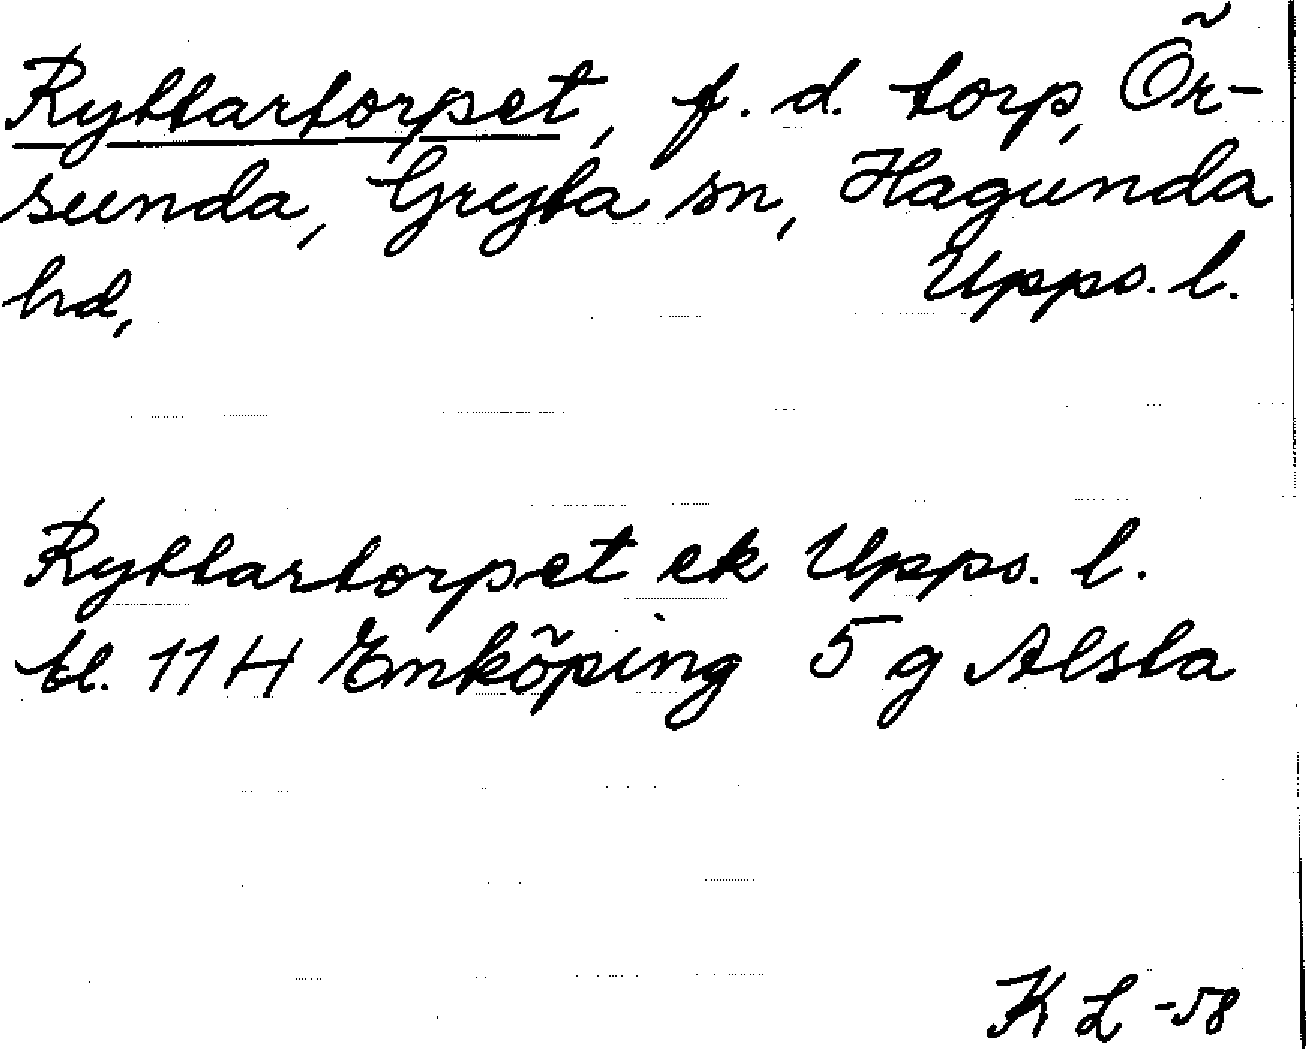 Ryttartorpet, f. d. torp, Ör-
sunda, Gryta sn, Hagunda
hd, Upps. l.
Ryttartorpet ek Upps. l.
bl. 11 H Enköping 5 g Alsta
K L -58